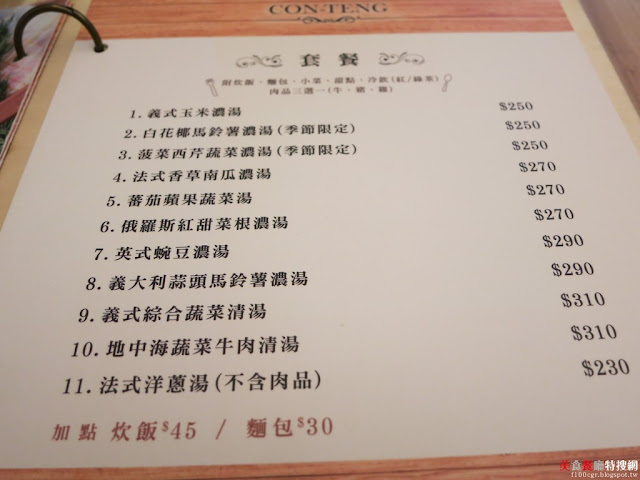 CON-TENG
套餐
附炊飯、麵包、小菜、甜點、冷飲(紅/綠茶)
肉品三選一(牛、豬、雞)
1. 義式玉米濃湯 $250
2. 白花椰馬鈴薯濃湯(季節限定) $250
3. 菠菜西芹蔬菜濃湯(季節限定) $250
4. 法式香草南瓜濃湯 $270
5. 蕃茄蘋果蔬菜湯 $270
6. 俄羅斯紅甜菜根濃湯 $270
7. 英式豌豆濃湯 $290
8. 義大利蒜頭馬鈴薯濃湯 $290
9. 義式綜合蔬菜清湯 $310
10. 地中海蔬菜牛肉清湯 $310
11. 法式洋蔥湯(不含肉品) $230
加點 炊飯$45 / 麵包$30
美食餐廳特搜網
f100cgr.blogspot.tw